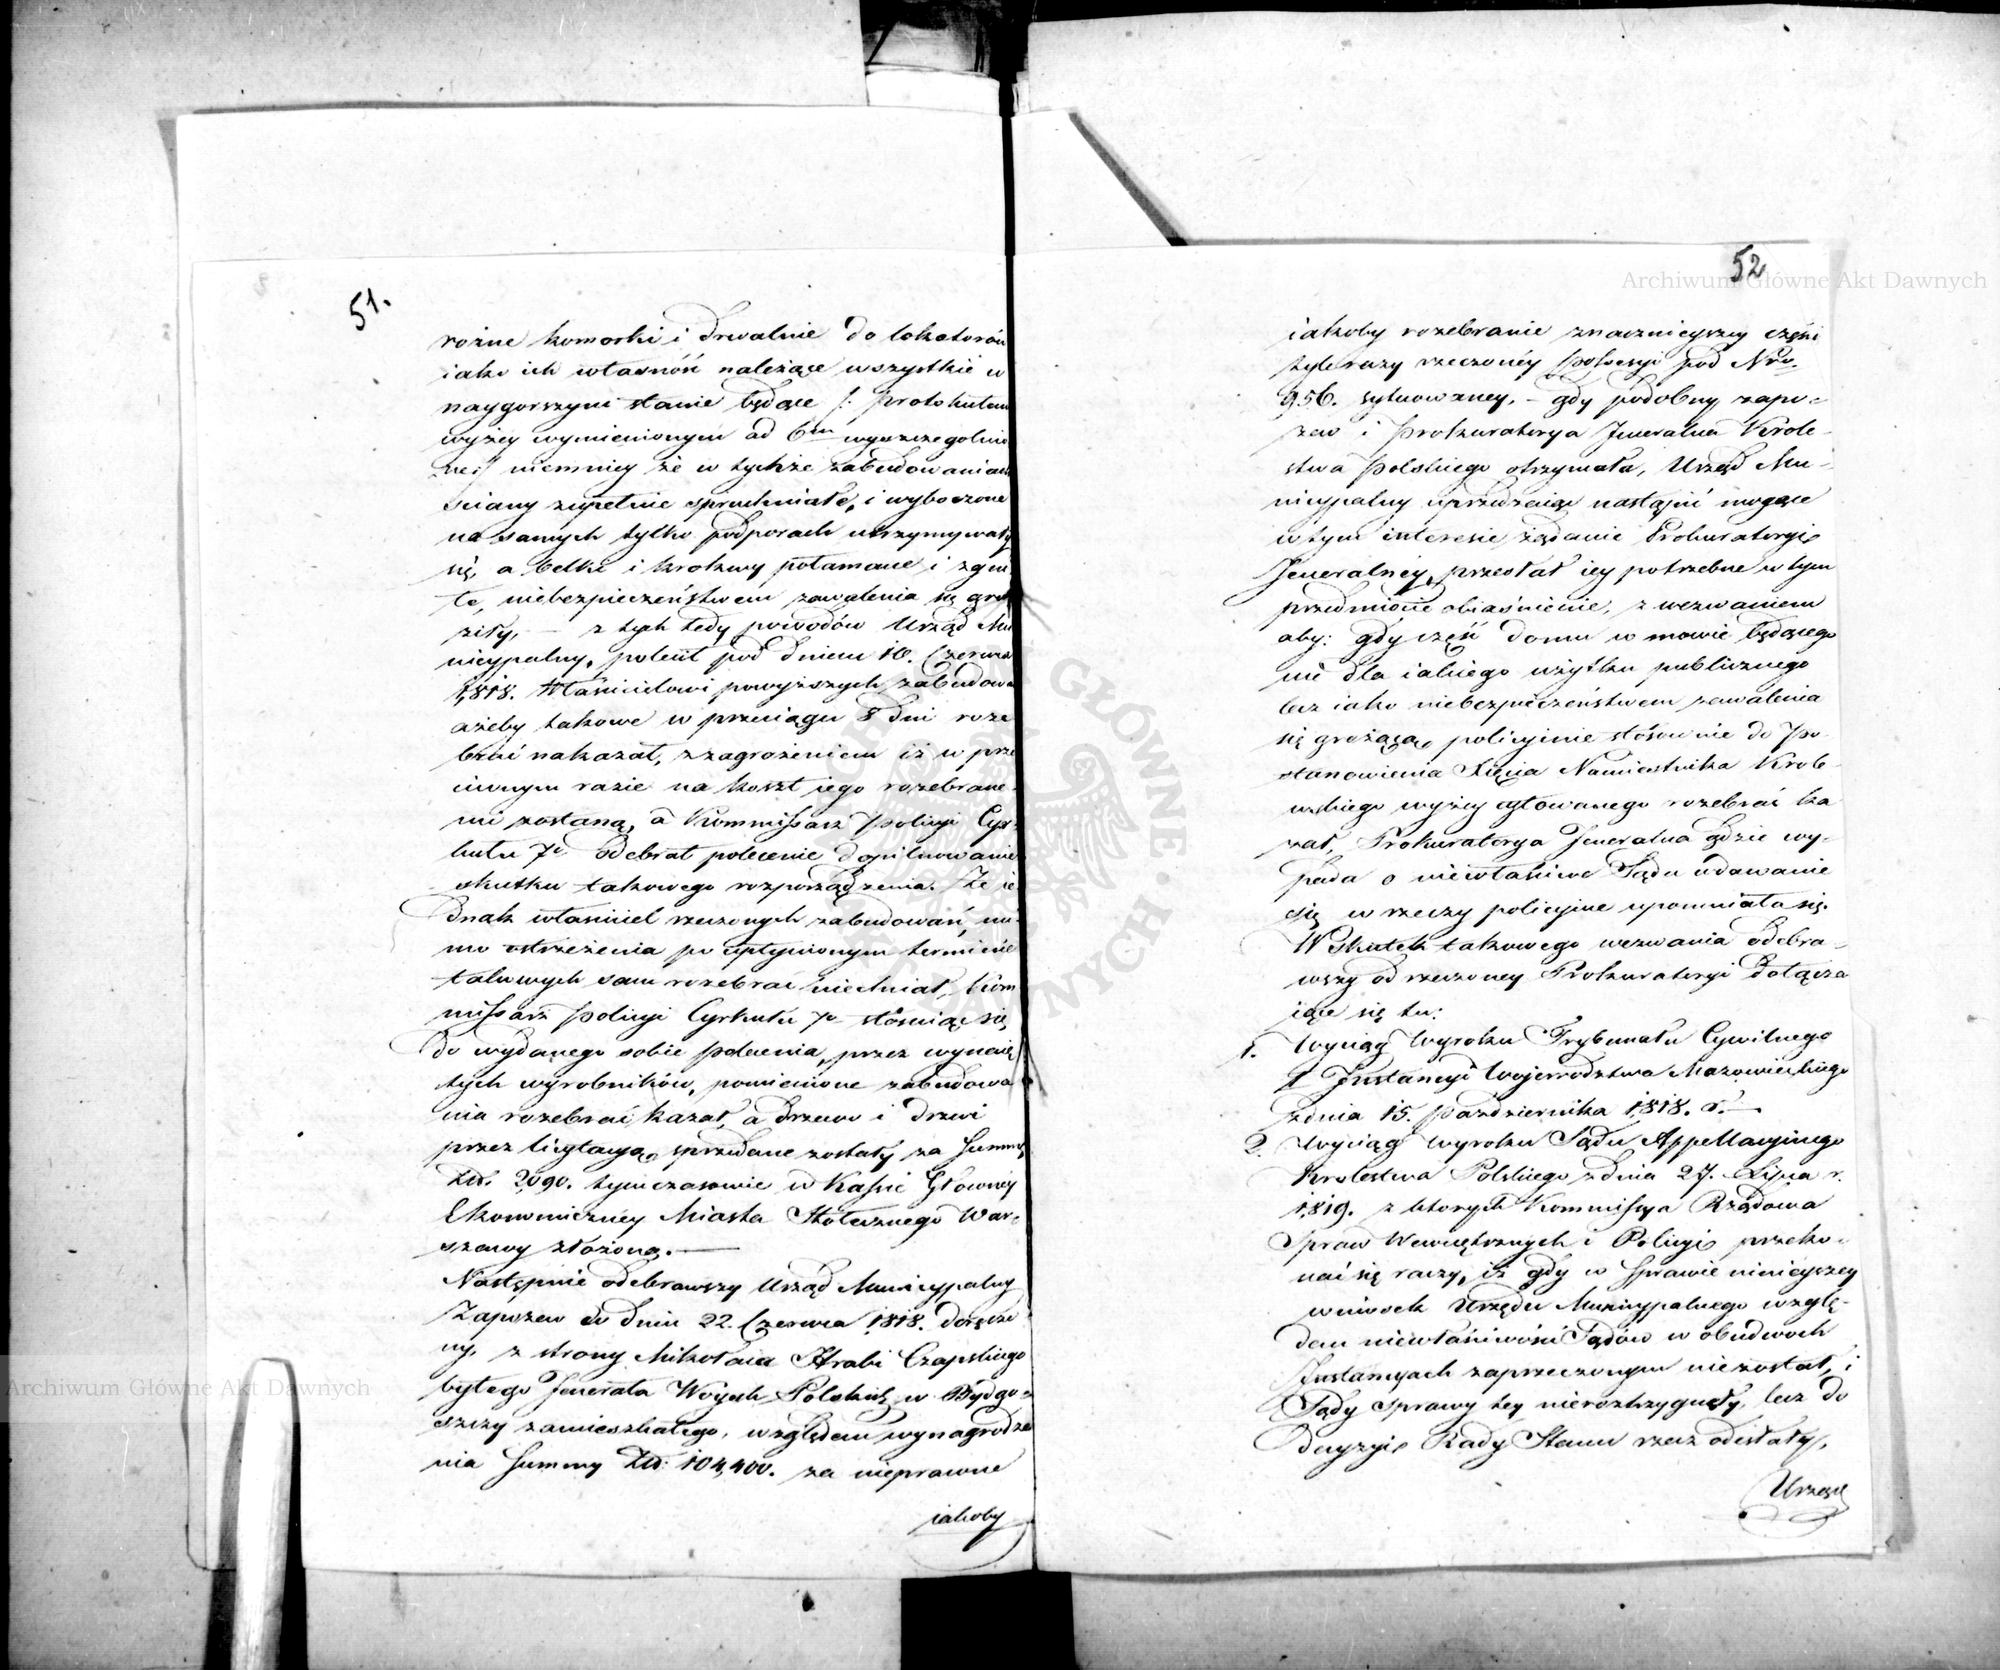 51.
rożne komorki i drwalnie do lokatorów
iako ich własność należące wszystkie w
naygorszym stanie będące /: protokułem
wyżey wymienionym ad 6m wyszczegolnio
ne :/ niemniey że w tychże zabudowaniach
sciany zupełnie spruchniałe, i wyboczone
na samych tylko podporach utrzymywały
się, a belki i krokwy połamane i zgni
łe, niebezpieczeństwem zawalenia się gro
ziły, — z tych tedy powodów Urząd Mu
nicypalny, polecił pod dniem 10. Czerwca
1818. Właścicielowi powyższych zabudowa
ażeby takowe w przeciągu 8 dni roze
brać nakazał, z zagrożeniem iż w prze
ciwnym razie na koszt iego rozebrane
mi zostaną, a Kommissarz Policyi Cyr
kułu 7o odebrał polecenie dopilnowanie
skutku takowego rozporządzenia. Że ie
dnak właściciel rzeczonych zabudowań, mi
mo ostrzeżenia po upłynionym terminie
takowych sam rozebrać niechciał, Kom
missarz Policyi Cyrkułu 7o stosuiąc się
do wydanego sobie polecenia, przez wynaię
tych wyrobników, pomienione zabudowa
nia rozebrać kazał, a drzewo i drzwi
przez licytacyą, sprzedane zostały za Summę
Złt. 2090. tymczasowie w Kassie Głowney
Ekonomiczney Miasta Stołecznego War-
szawy złożoną. —
Następnie odebrawszy Urząd Municypalny
Zapozew w dniu 22. Czerwca 1818. doręczo
ny, z strony Mikołaia Hrabi Czapskiego
byłego Jenerała Woysk Polskich w Bydgo-
szczy zamieszkałego, względem wynagrodze
nia Summy Złt. 104,400. za nieprawne
iakoby
52
iakoby rozebranie znacznieyszey części
tylerazy rzeczonéy Possesyi pod Nro.
956. sytuowaney, — gdy podobny zapo-
zew i Prokuratorya Jeneralna Krole-
stwa Polskiego otrzymała, Urząd Mu-
nicypalny uprzedzaiąc nastąpić mogące
w tym interesie żądanie Prokuratoryi
Jeneralney, przesłał iey potrzebne w tym
przedmiocie obiaśnienie, z wezwaniem
aby: gdy część domu w mowie będącego
nie dla iakiego użytku publicznego
lecz iako niebezpieczeństwem zawalenia
się grożącą, policyinie stosownie do Po-
stanowienia Xięcia Namiestnika Krole-
wskiego wyżey cytowanego rozebrać ka
zał, Prokuratorya Jeneralna gdzie wy-
pada o niewłaściwe Sądu udawanie
się w rzeczy policyine upomniała się.
W Skutek takowego wezwania odebra-
wszy od rzeczoney Prokuratoryi dołącza
iące się tu:
1. Wyciąg Wyroku Trybunału Cywilnego
I Instancyi Wojewodztwa Mazowieckiego
z dnia 15. Października 1818. r. —
2. Wyciąg Wyroku Sądu Appellacyinego
Krolestwa Polskiego z dnia 27. Lipca r.
1819. z ktorych Kommissya Rządowa
Spraw Wewnętrznych i Policyi przeko-
nać się raczy, iż gdy w Sprawie ninieyszey
wniosek Urzędu Municypalnego wzglę-
dem niewłaściwości Sądów w obudwoch
Instancyach zaprzeczonym niezostał, i
Sądy sprawy tey nierostrzygnęły, lecz do
decyzyi Rady Stanu rzecz odesłały,
Urząd
Archiwum Główne Akt Dawnych
Archiwum Główne Akt Dawnych